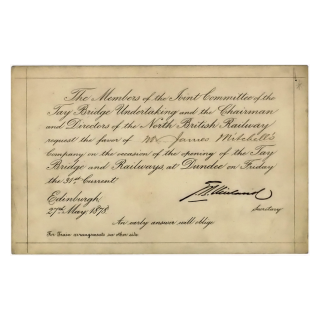 The Members of the Joint Committee of the
Tay Bridge Undertaking and the Chairman
and Directors of the North British Railway
request the favor of Mr James Mitchell's
Company on the occasion of the opening of the Tay
Bridge and Railways, at Dundee on Friday
the 31st Current.
Edinburgh
27th May, 1878.
Secretary.
An early answer will oblige.
For Train arrangements see other side.